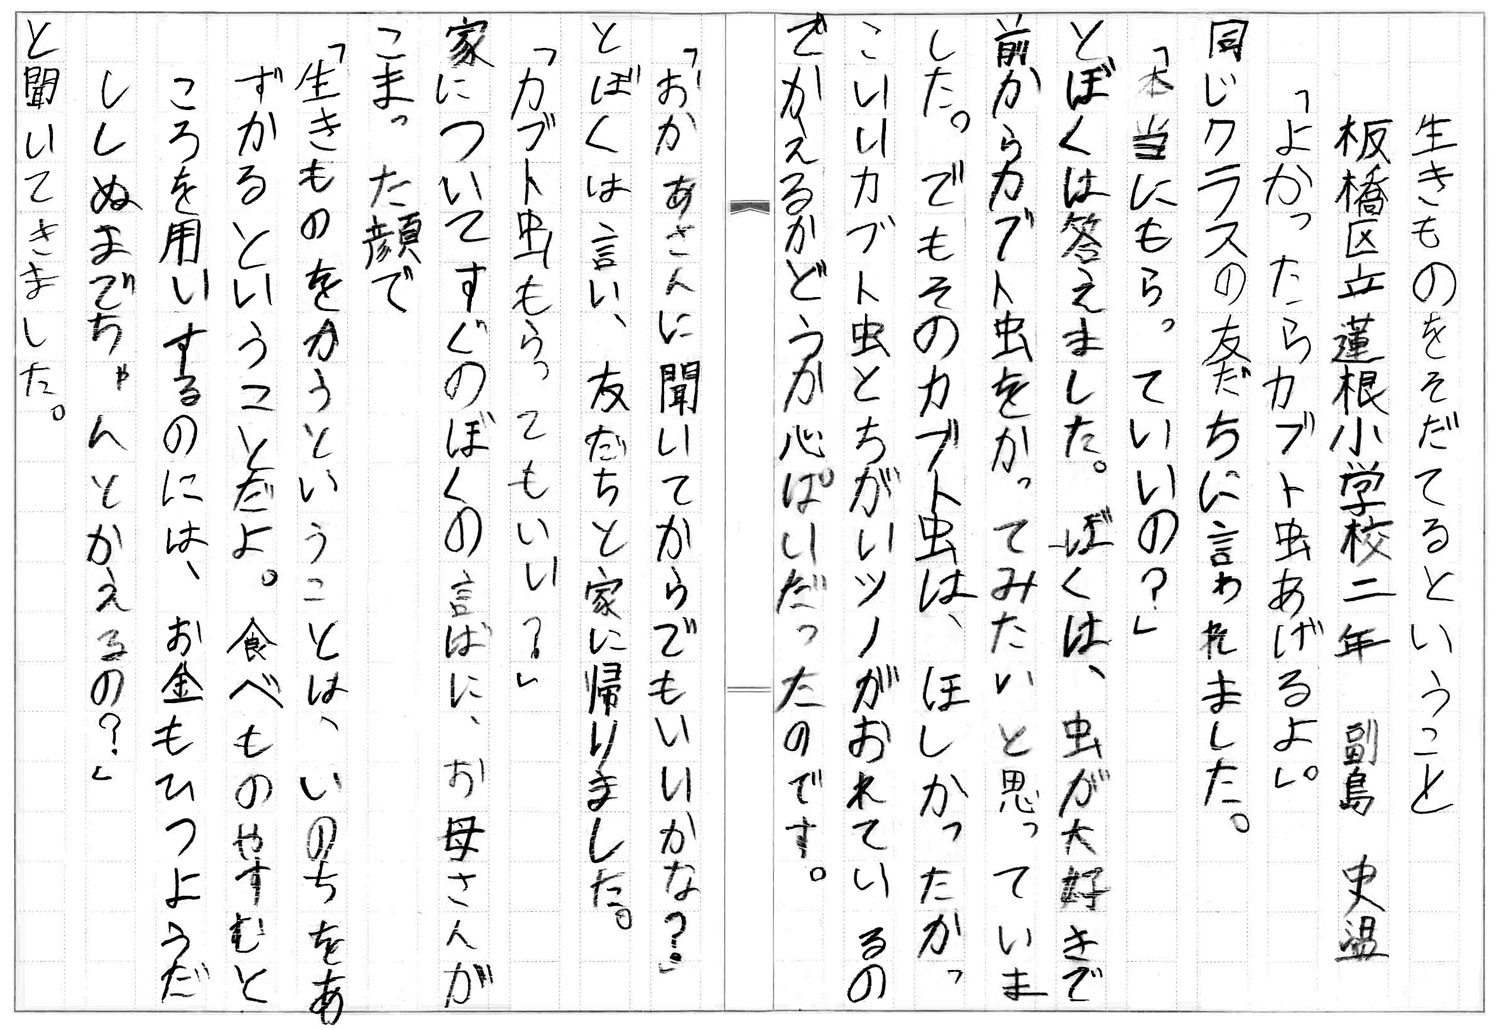 生きものをそだてるということ
板橋区立蓮根小学校二年　副島　史温
「よかったらカブト虫あげるよ。」
同じクラスの友だちに言われました。
「本当にもらっていいの？」
とぼくは答えました。ぼくは、虫が大好きで
前からカブト虫をかってみたいと思っていま
した。でもそのカブト虫は、ほしかったかっ
こいいカブト虫とちがいツノがおれているの
でかえるかどうか心ぱいだったのです。
「おかあさんに聞いてからでもいいかな？」
とぼくは言い、友だちと家に帰りました。
「カブト虫もらってもいい？」
家についてすぐのぼくの言ばに、お母さんが
こまった顔で
「生きものをかうということは、いのちをあ
ずかるということだよ。食べものやすむと
ころを用いするのには、お金もひつようだ
ししぬまでちゃんとかえるの？」
と聞いてきました。